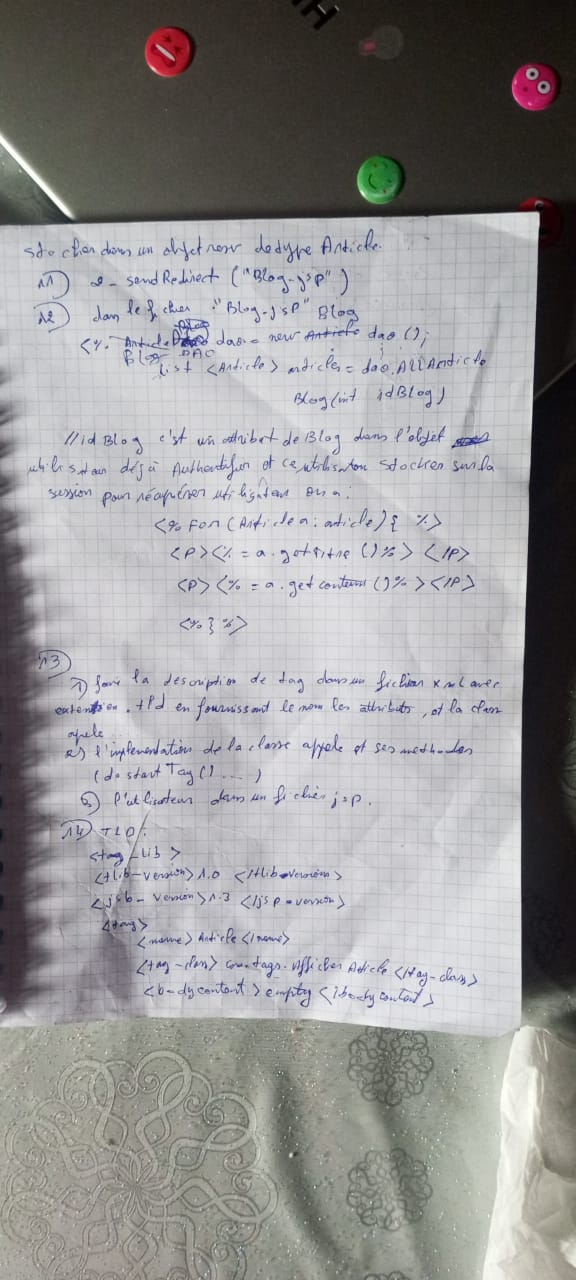 HP
stocker dans un objet resv de type Article.
11) 2 - sendRedirect ("Blog-jsp")
12) dans le fichier "Blog-jsp" Blog
<%. Article Blog dao = new Article dao ();
Blog DAO
list <Article> articles = dao.AllArticle
Blog (int idBlog)
// id Blog c'est un attribut de Blog dans l'objet
utilisateur déjà Authentifier et ce utilisateur stocker sur la
session pour récupérer utilisateur on a :
<% For (Article a : article) { %>
<P> <% = a. getTitre () %> </P>
<P> <% = a. get contenu () % > </P>
<% } %>
13)
1) faire la description de tag dans un fichier xml avec
extention .tld en fournissant le nom les attributs, et la class
apele
2) l'implementation de la classe appele et ses methodes
(do start Tag () .... )
3) l'utilisateur dans un fichier jsp.
14) TLD :
<tag-lib >
<tlib-version> 1.0 </tlib-version>
<jsb-version> 1.3 </jsp-version>
<tag>
<name> Article </name>
<tag-class> com.tags.Afficher Article </tag-class>
<b-dycontent > empty </bodycontent>